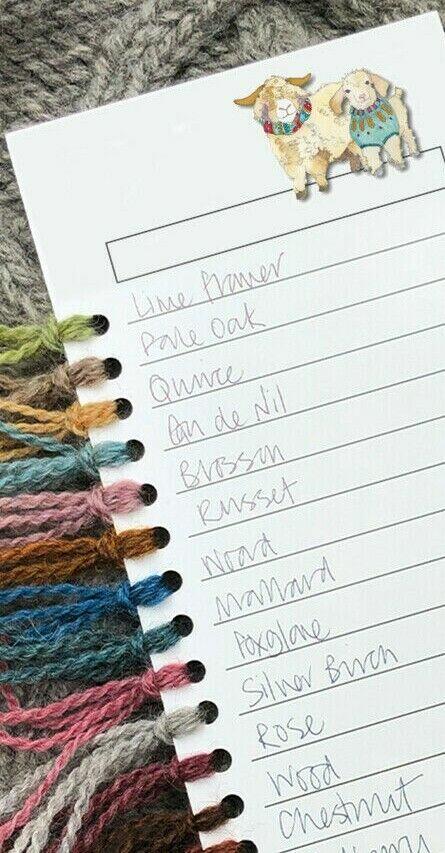 Lime Flower
Pale Oak
Quince
Eau de Nil
Blossom
Russet
Woad
Mallard
Foxglove
Silver Birch
Rose
Wood
Chestnut